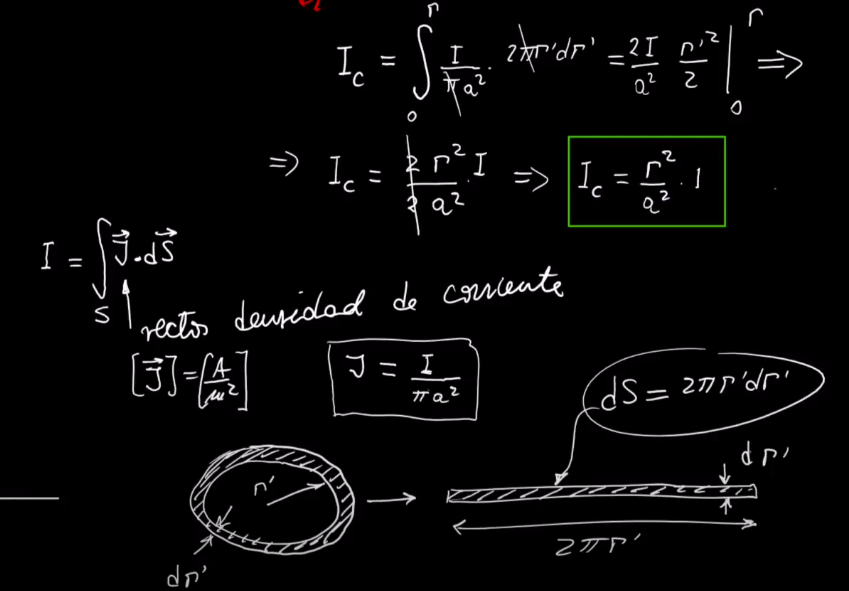 I_c = ∫₀^r I/(πa²) · 2πr'dr' = 2I/a² r'²/2 |₀^r ⇒
⇒ I_c = 2/2 r²/a² · I ⇒ I_c = r²/a² · I
I = ∫_S J⃗ · dS⃗
vector densidad de corriente
[J⃗] = [A/m²]
J = I/(πa²)
dS = 2πr'dr'
dr'
r'
2πr'
dr'